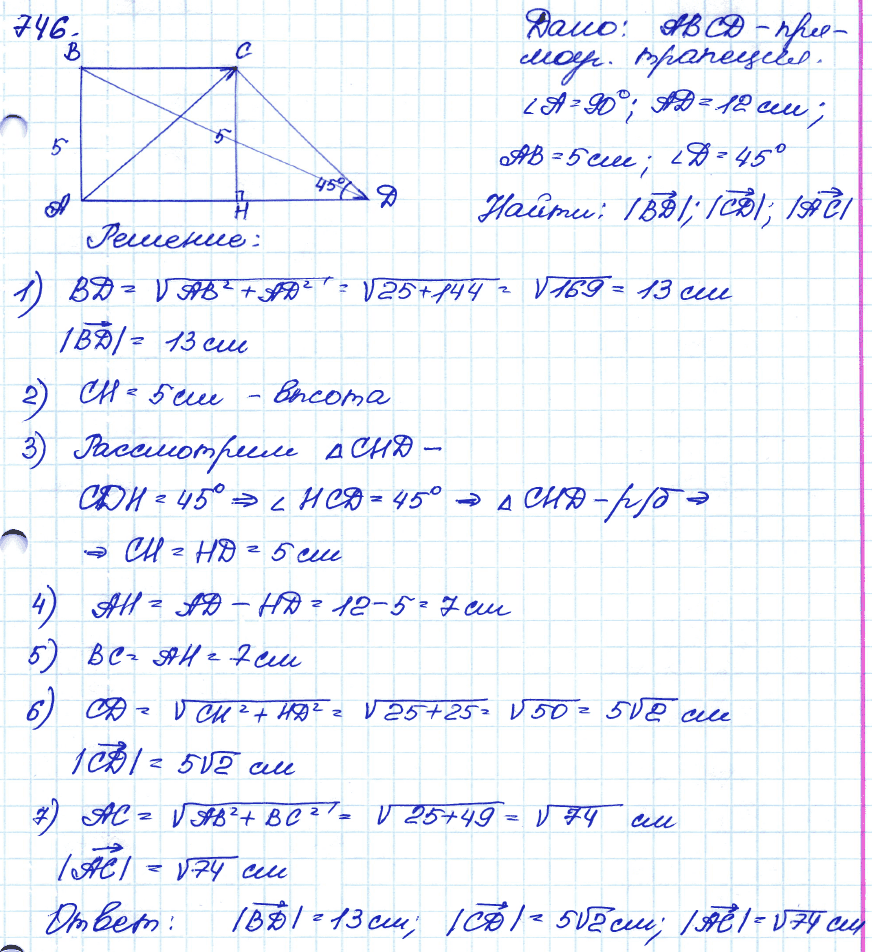 746.
B
C
5
5
45°
A
H
D
Дано: ABCD – пря-
моуг. трапеция.
∠A = 90°; AD = 12 см;
AB = 5 см; ∠D = 45°
Найти: |BD→|; |CD→|; |AC→|
Решение:
1) BD = √(AB² + AD²) = √(25 + 144) = √169 = 13 см
|BD→| = 13 см
2) CH = 5 см – высота
3) Рассмотрим △CHD –
CDH = 45° ⇒ ∠HCD = 45° ⇒ △CHD – р/б ⇒
⇒ CH = HD = 5 см
4) AH = AD – HD = 12 – 5 = 7 см
5) BC = AH = 7 см
6) CD = √(CH² + HD²) = √(25 + 25) = √50 = 5√2 см
|CD→| = 5√2 см
7) AC = √(AB² + BC²) = √(25 + 49) = √74 см
|AC→| = √74 см
Ответ: |BD→| = 13 см; |CD→| = 5√2 см; |AC→| = √74 см